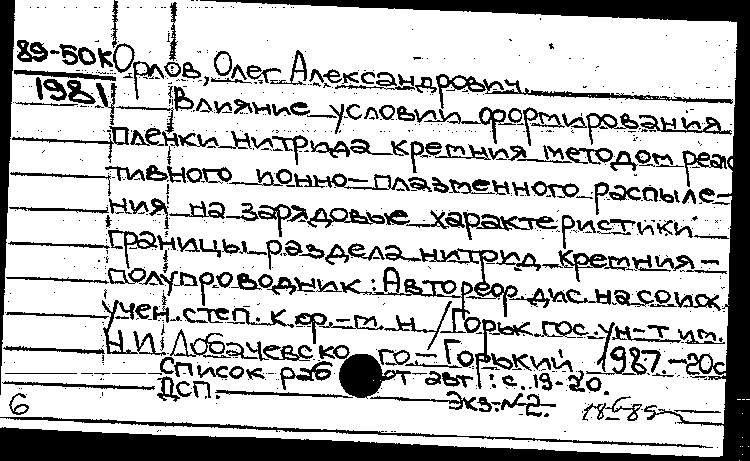 89-50к Орлов, Олег Александрович.
1981 Влияние условий формирования
пленки нитрида кремния методом реак
тивного ионно-плазменного распыле-
ния на зарядовые характеристики
границы раздела нитрид кремния-
полупроводник: Автореф. дис. на соиск.
учен. степ. к.ф.-м.н/Горьк. гос. ун-т им.
Н.И. Лобачевско го.-Горький, 1987.-20с
Список раб от авт.: с. 19-20.
ДСП. Экз. №2.
6